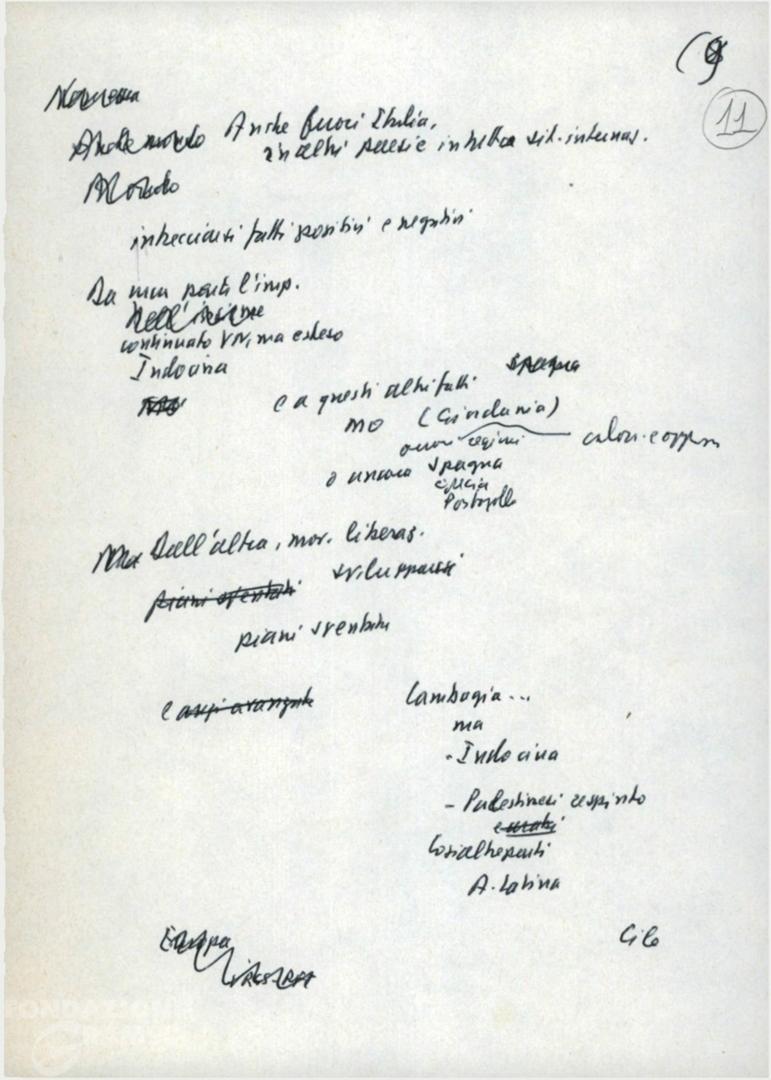 (9
11
Anche fuori Italia,
in altri paesi e in tutta sit. internaz.
Mondo
intrecciarsi fatti positivi e negativi
Da una parte l'imp.
Nell'insieme
continuato VN, ma esteso
Indocina
e a questi altri fatti Spagna
MO (Giordania)
regimi colon. e oppress
o ancora Spagna
Grecia
Portogallo
Ma Dall'altra, mov. liberaz.
piani sventati svilupparsi
piani sventati
e Cambogia...
ma
- Indocina
- Palestinesi respinto
Così altre parti
A. Latina
Europa Cile